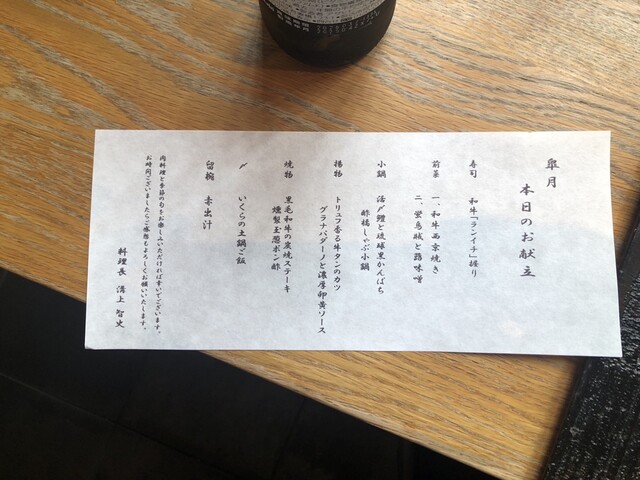 皐月
本日のお献立
寿司 和牛「ランイチ」握り
前菜 一、和牛西京焼き
二、蛍烏賊と蕗味噌
小鍋 活〆鰹と琉球黒かんぱち
酢橘しゃぶ小鍋
揚物 トリュフ香る牛タンのカツ
グラナパダーノと濃厚卵黄ソース
焼物 黒毛和牛の炭焼ステーキ
燻製玉葱ポン酢
〆 いくらの土鍋ご飯
留椀 赤出汁
肉料理と季節の旬をお楽しみいただければ幸いでございます。
お時間ございましたらご感想もよろしくお願いいたします。
料理長 溝上 智史